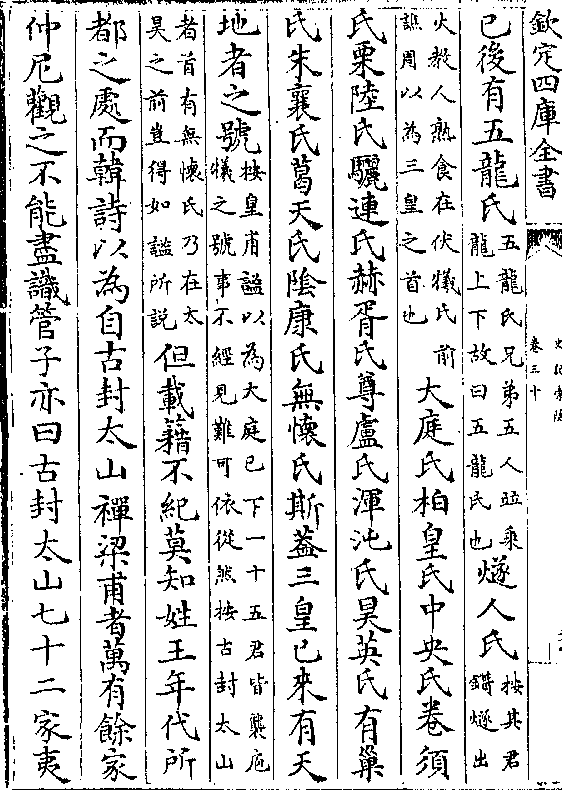 欽定四庫全書
史記索隱
卷三十
已後有五龍氏五龍氏兄弟五人竝乘龍上下故曰五龍氏也燧人氏按其君鑽燧出
火教人熟食在伏犧氏前譙周以為三皇之首也大庭氏柏皇氏中央氏卷須
氏栗陸氏驪連氏赫胥氏尊盧氏渾沌氏昊英氏有巢
氏朱襄氏葛天氏陰康氏無懷氏斯蓋三皇已來有天
地者之號按皇甫謐以為大庭已下一十五君皆襲庖犧之號事不經見難可依從然按古封太山
者首有無懷氏乃在太昊之前豈得如謐所說但載籍不紀莫知姓王年代所
都之處而韓詩以為自古封太山禪梁甫者萬有餘家
仲尼觀之不能盡識管子亦曰古封太山七十二家夷